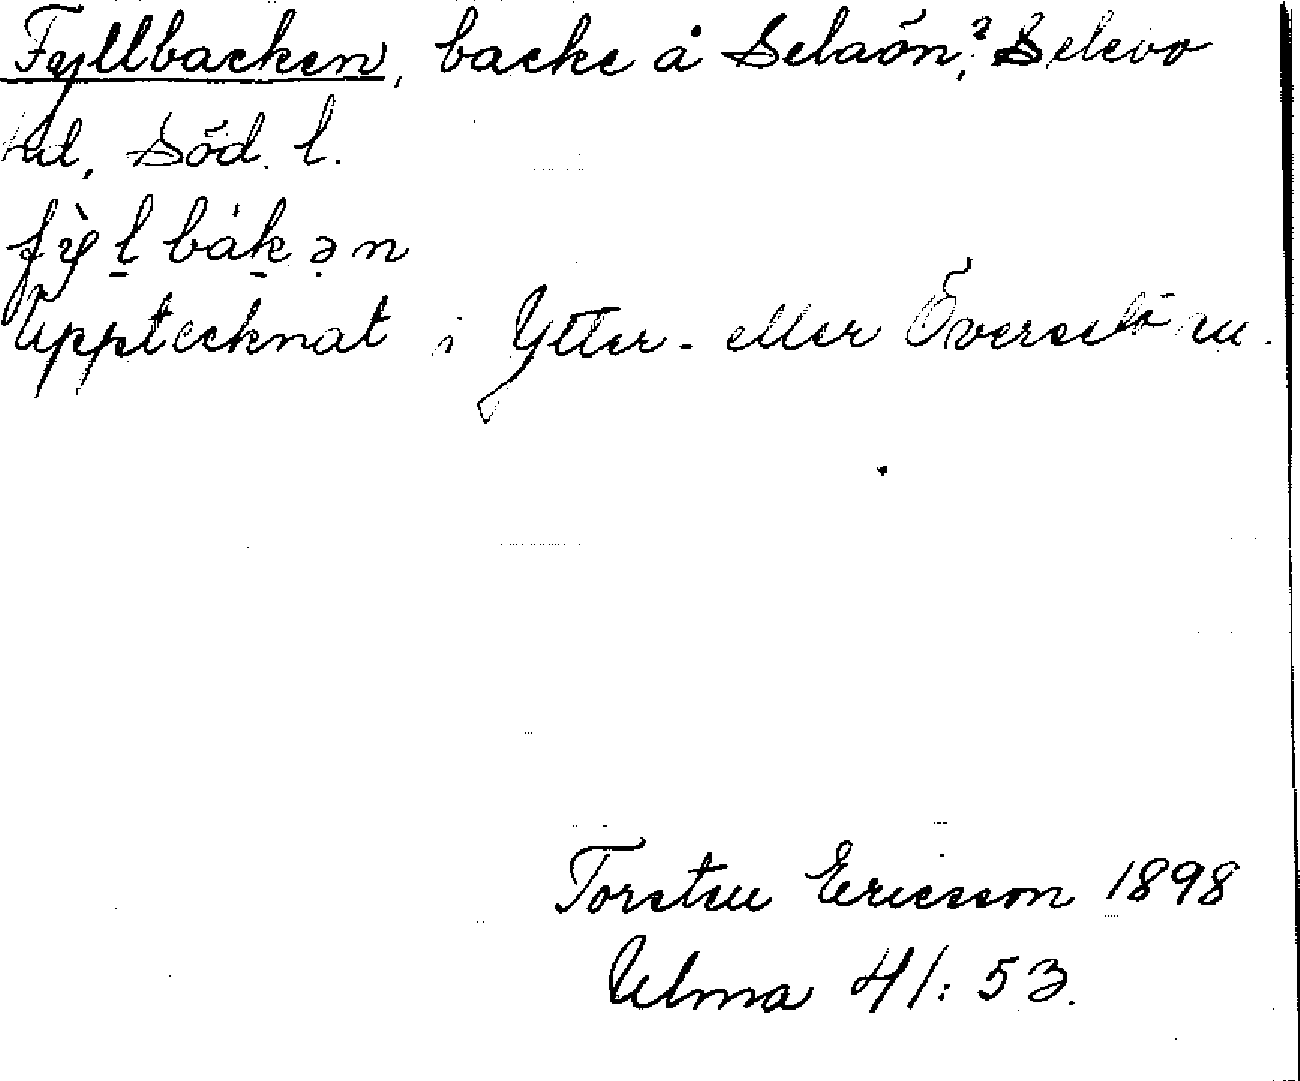 Fyllbacken, backe å Selaön,? Selebo
hd, Söd. l.
fỳl̠ bák̠ ə̣n
Upptecknat i Ytter- eller Överselö sn.
Torsten Ericsson 1898
Ulma 41:53.